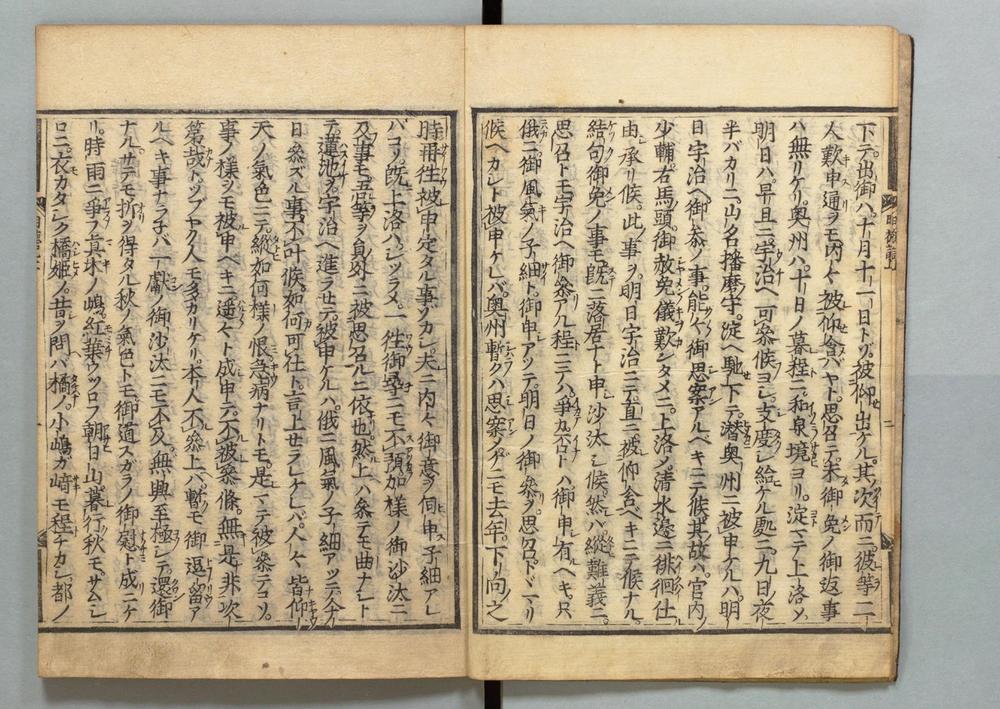 下テ出御ハ十月十一日トゾ被仰出ケル其次而ニ彼等二
人歎申通ヲモ内々被仰含ハヤト思召テ未御免ノ御返事
ハ無リケリ奥州ハ十日ノ暮程ニ和泉境ヨリ淀マテ上洛メ
明日ハ早旦ニ宇治ヘ可参候ヨシ支度シ給ケル処ニ九日ノ夜
半バカリニ山名播磨守淀ヘ馳下テ潜奥州ニ被申ケルハ明
日宇治ヘ御参ノ事能々御思案アルベキニテ候其故ハ官内ノ
少輔右馬頭御赦免儀歎シタメニ上洛メ清水邊ニ徘徊仕ル
由承リ候此事ヲ明日宇治ニテ直ニ被仰含ヘキニテ候ナル
結句御免ノ事モ既ニ落居ナト申沙汰シ候然ハ縦難義ニ
思召トモ宇治ヘ御参アル程ニテハ争カ否トハ御申有ヘキ只
俄ニ御風氣ノ子細ト御申アツテ明日ノ御参ヲ思召トヾマリ
候ヘカシト被申ケレバ奥州暫クハ思案ノゲニモ去年下向之
時冊往被申定タル事ゾカシ夫ニ内々御意ヲ伺申子細アレ
バコソ既ニ上洛ハシツラメ一往御尋ニモ不預加様ノ御沙汰ニ
及事モ吾等ヲ身外ニ被思召ルニ依也然上ハ参テモ曲ナシト
テ蓮池ヲ宇治ヘ進ラせテ被申ケルハ俄ニ風氣ノ子細アツテ今
日参ズル事不叶候如何可仕ト言上せラレケレバ人々皆仰
天ノ氣色ニテ縦如何様ノ恨急病ナリトモ是マテ被参テコソ
事ノ様ヲモ被申ヘキニ遥々ト成申テ不被参條無是非次
第哉トツブヤク人モ多カリケリ本人不参上ハ暫モ御逗留ア
ルヘキ事ナラ子バ一獻ノ御沙汰ニモ不及無興至極シテ還御
ナルサテモ折ヲ得タル秋ノ氣色トモ御道スガラノ御慰ト成ニケ
リ時雨ニ爭フ真木ノ嶋紅葉ウツロフ朝日山暮行秋モサムシ
ロニ衣カタシク橋姫ノ昔ヲ問バ橘ノ小嶋ガ崎モ程チカシ都ノ